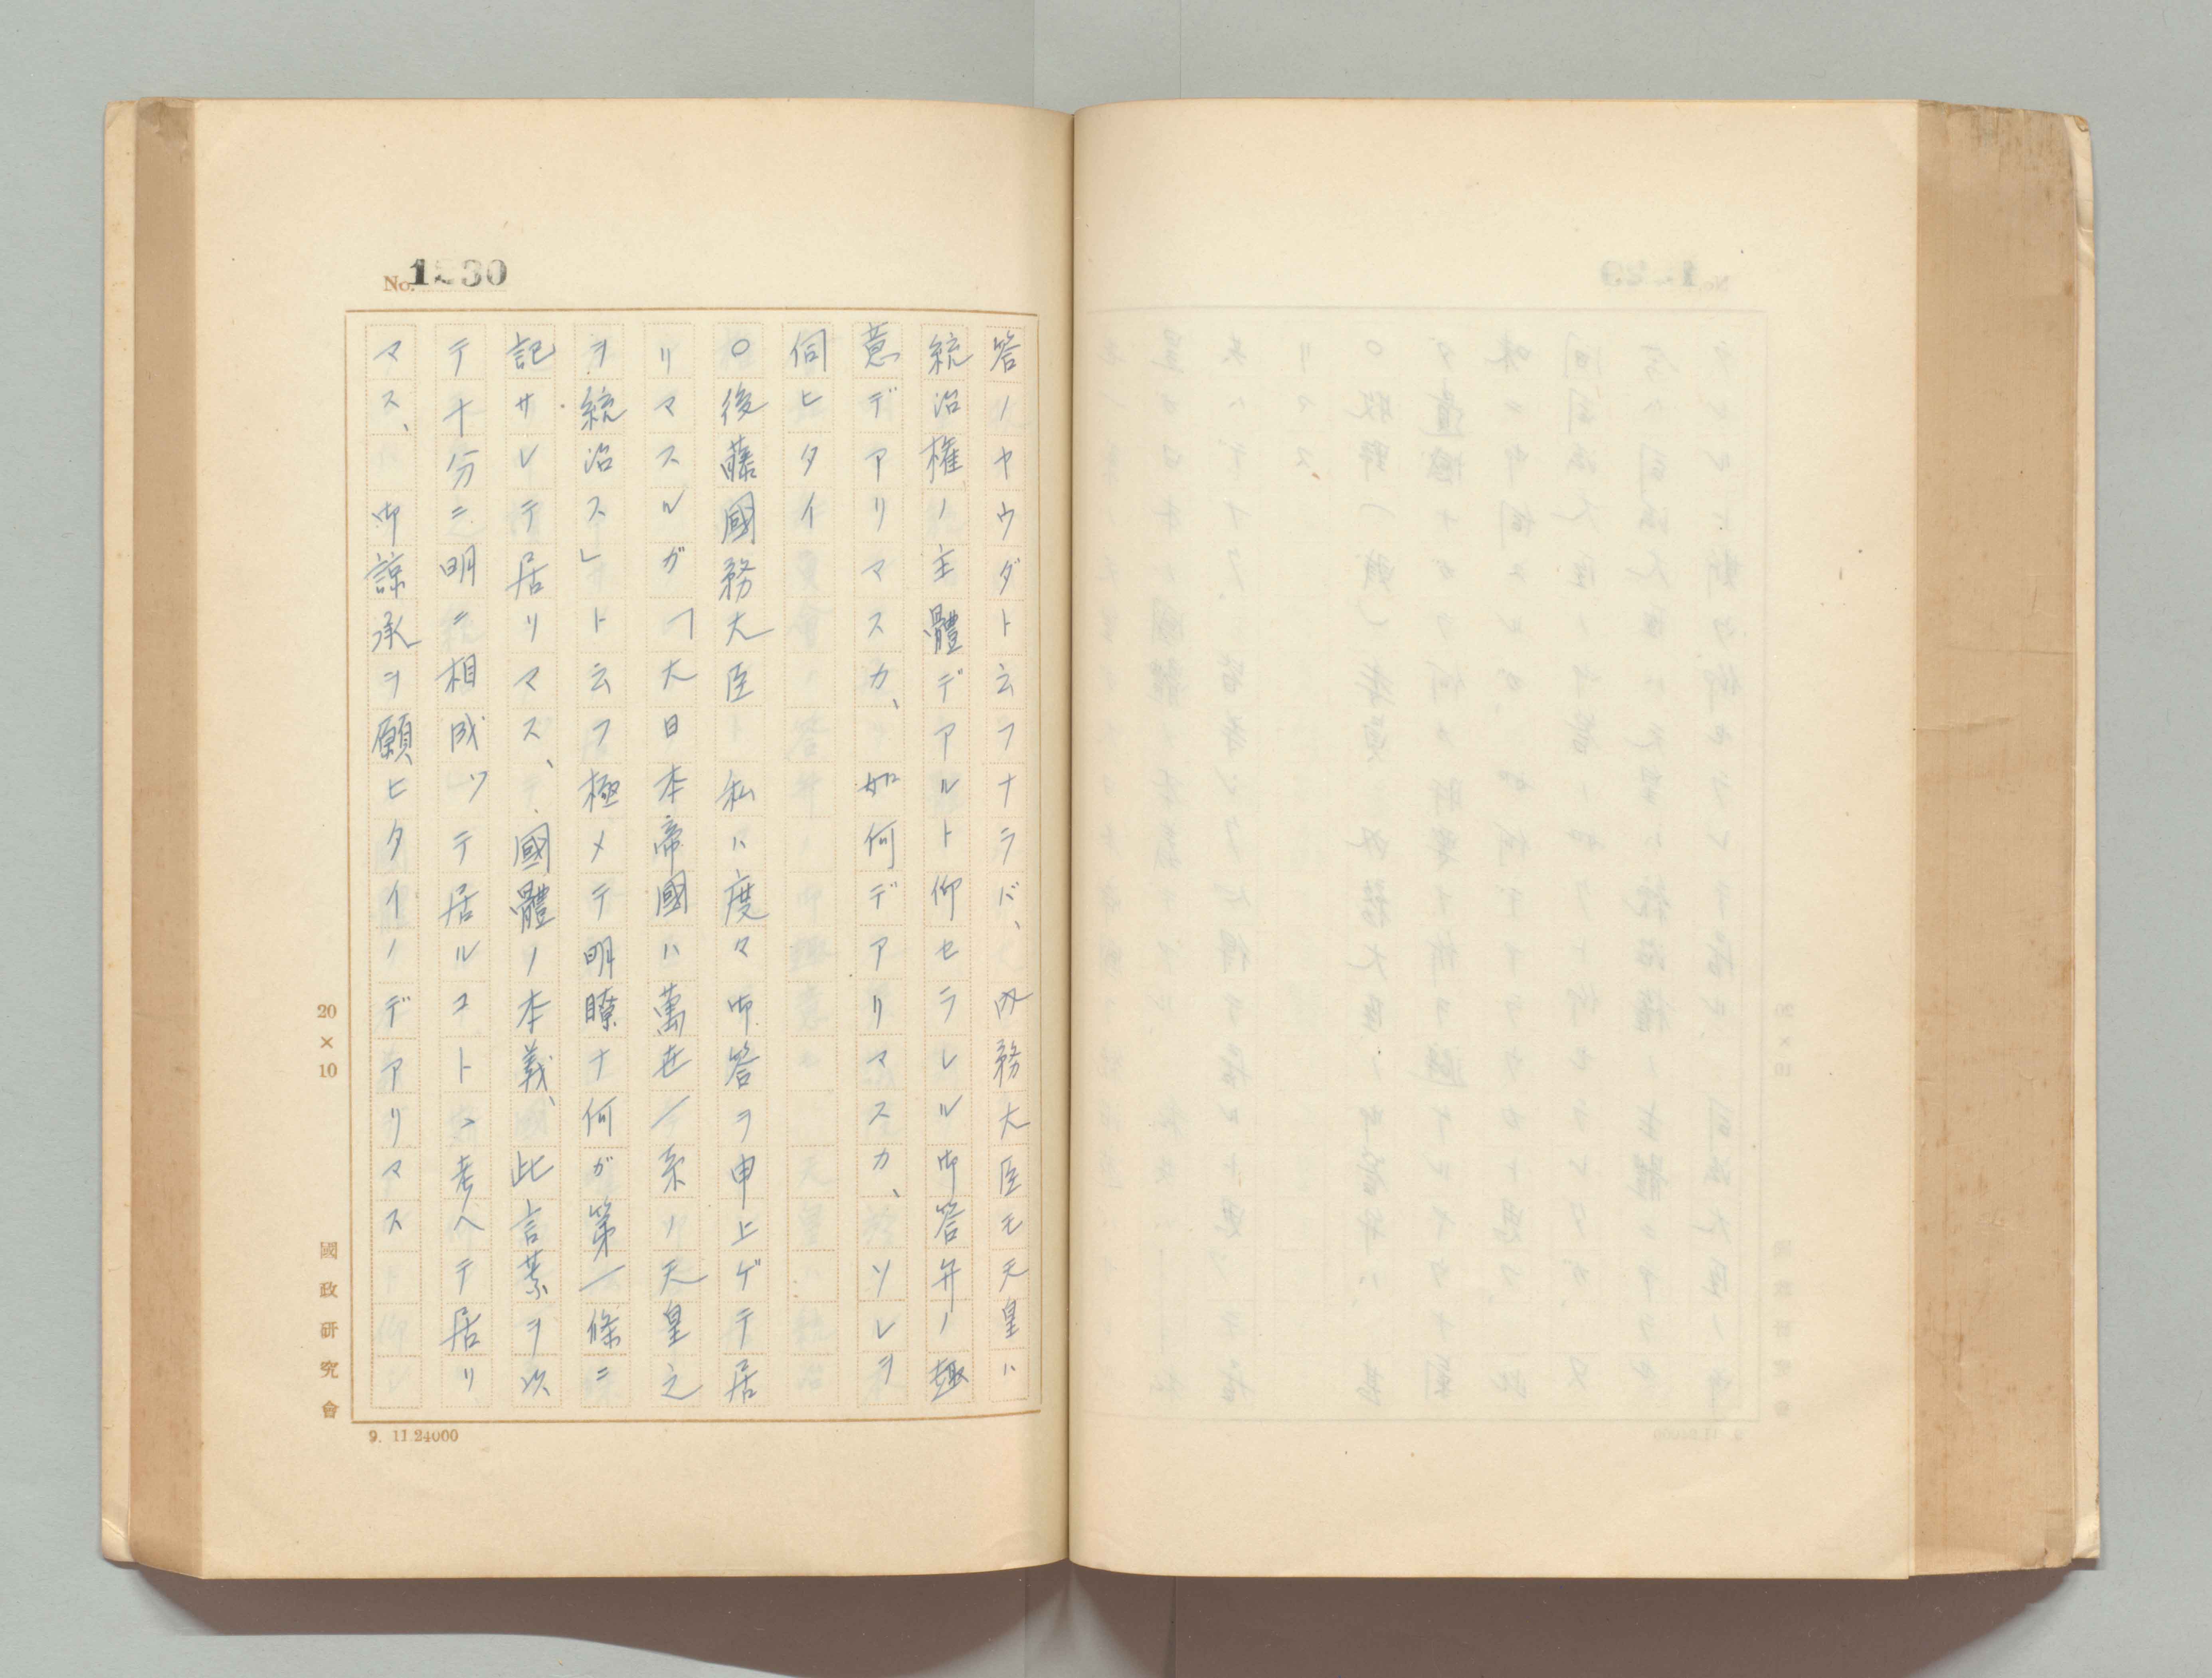 No. 1230
答ノヤウダト云フナラバ、内務大臣モ天皇ハ
統治権ノ主體デアルト仰セラレル御答弁ノ趣
意デアリマスカ、如何デアリマスカ、ソレヲ
伺ヒタイ
〇後藤國務大臣 私ハ度々御答ヲ申上ゲテ居
リマスルガ「大日本帝國ハ萬世一系ノ天皇之
ヲ統治ス」ト云フ極メテ明瞭ナ何ガ第一條ニ
記サレテ居リマス、國體ノ本義、此言葉ヲ以
テ十分ニ明ニ相成ッテ居ルコトヽ考ヘテ居リ
マス、御諒承ヲ願ヒタイノデアリマス
20×10
國政研究會
9. 11.24000